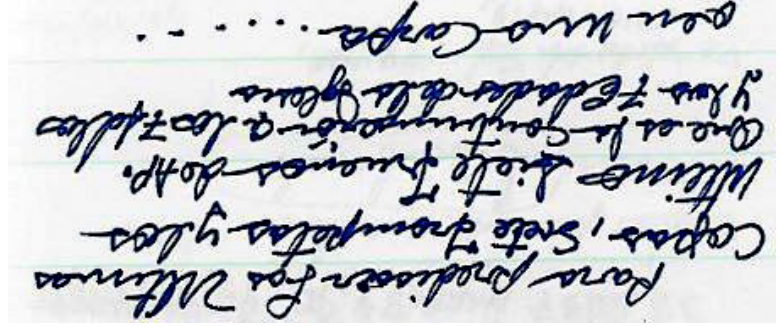 Para predicar las Ultimas
Copas, Siete Trompetas y los
Ultimos Siete Truenos de Ap.
Que es la Continuación a los 7 sellos
y las 7 Edades de la Iglesia
en una Carpa . . . . . . .